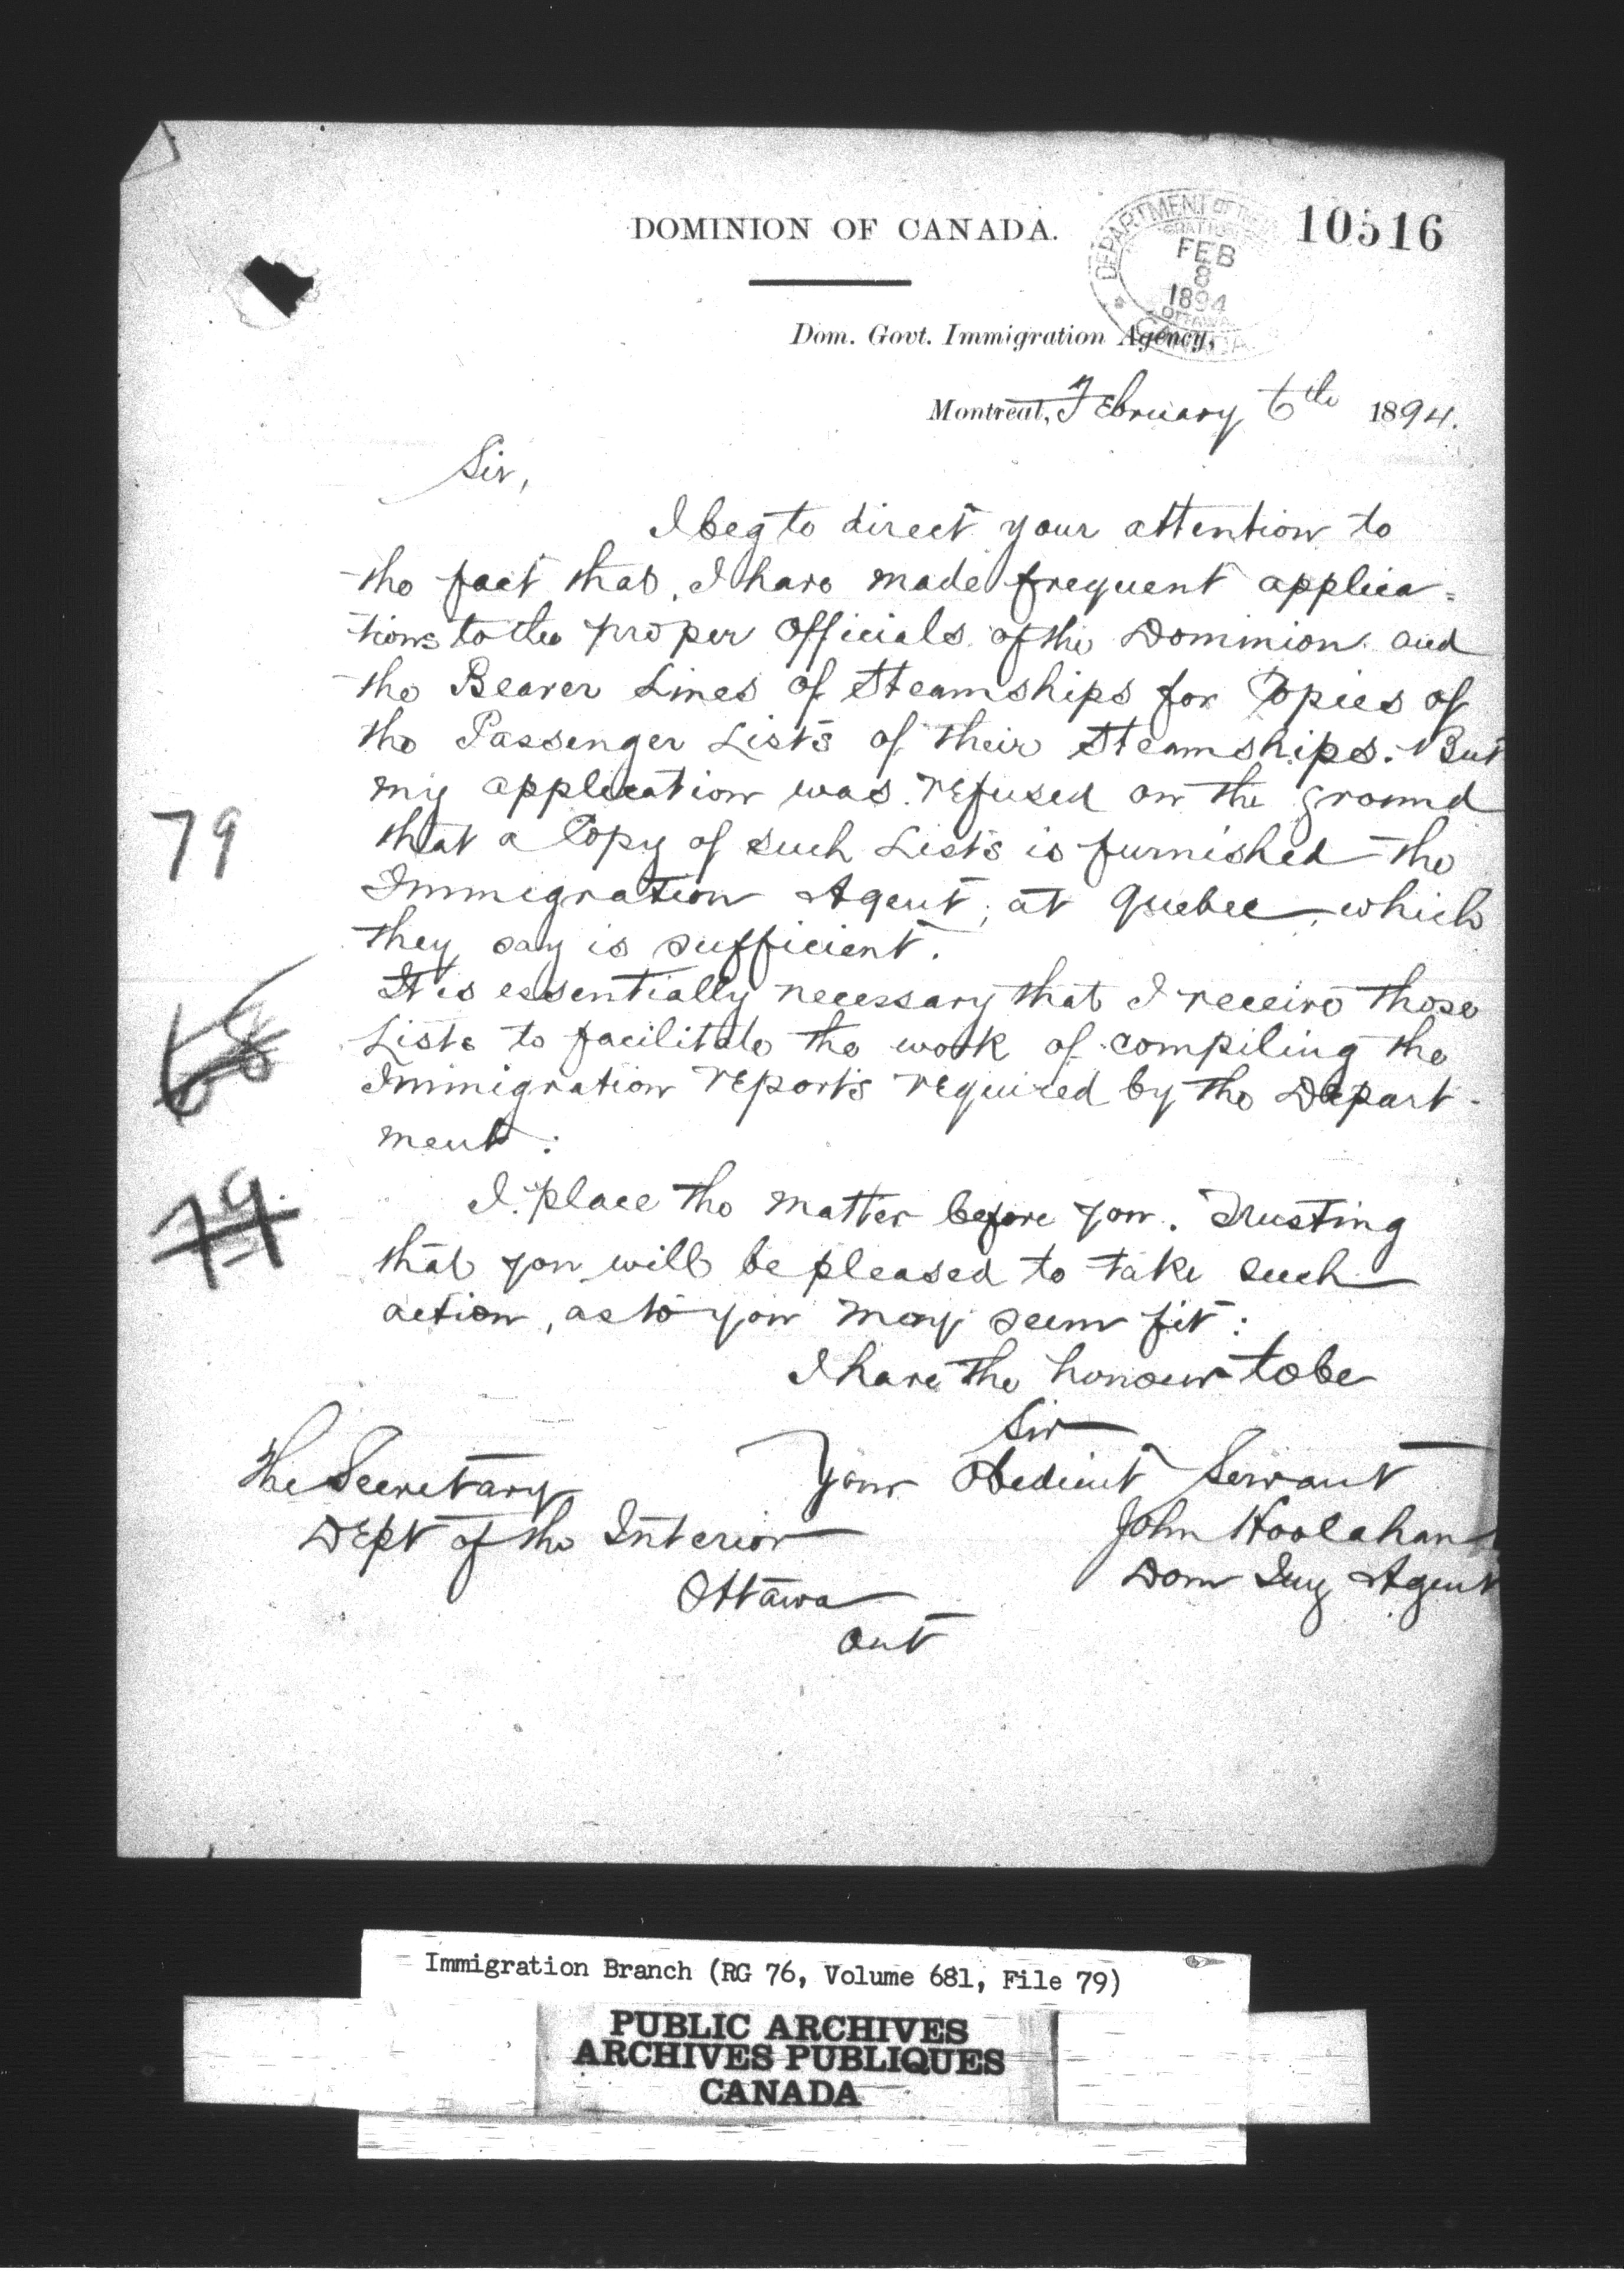 DOMINION OF CANADA.
10516
DEPARTMENT OF THE
FEB
8
1894
OTTAWA
CANADA
Dom. Govt. Immigration Agency,
Montreal, February 6th 1894.
Sir,
I beg to direct your attention to
the fact that, I have made frequent applica=
tions to the proper officials of the Dominion and
the Beaver Lines of Steamships for Copies of
the Passenger Lists of their Steamships. But
my application was refused on the ground
that a Copy of such Lists is furnished the
Immigration Agent, at Quebec, which
they say is sufficient.
It is essentially necessary that I receive those
Lists to facilitate the work of compiling the
Immigration reports required by the Depart-
ment:
I place the matter before you. Trusting
that you will be pleased to take such
action, as to you may seem fit:
I have the honour to be
Sir
Your Obedient Servant
John Hoolahan
Dom Img Agent
The Secretary
Dept of the Interior
Ottawa
Ont
79
68
79
Immigration Branch (RG 76, Volume 681, File 79)
PUBLIC ARCHIVES
ARCHIVES PUBLIQUES
CANADA